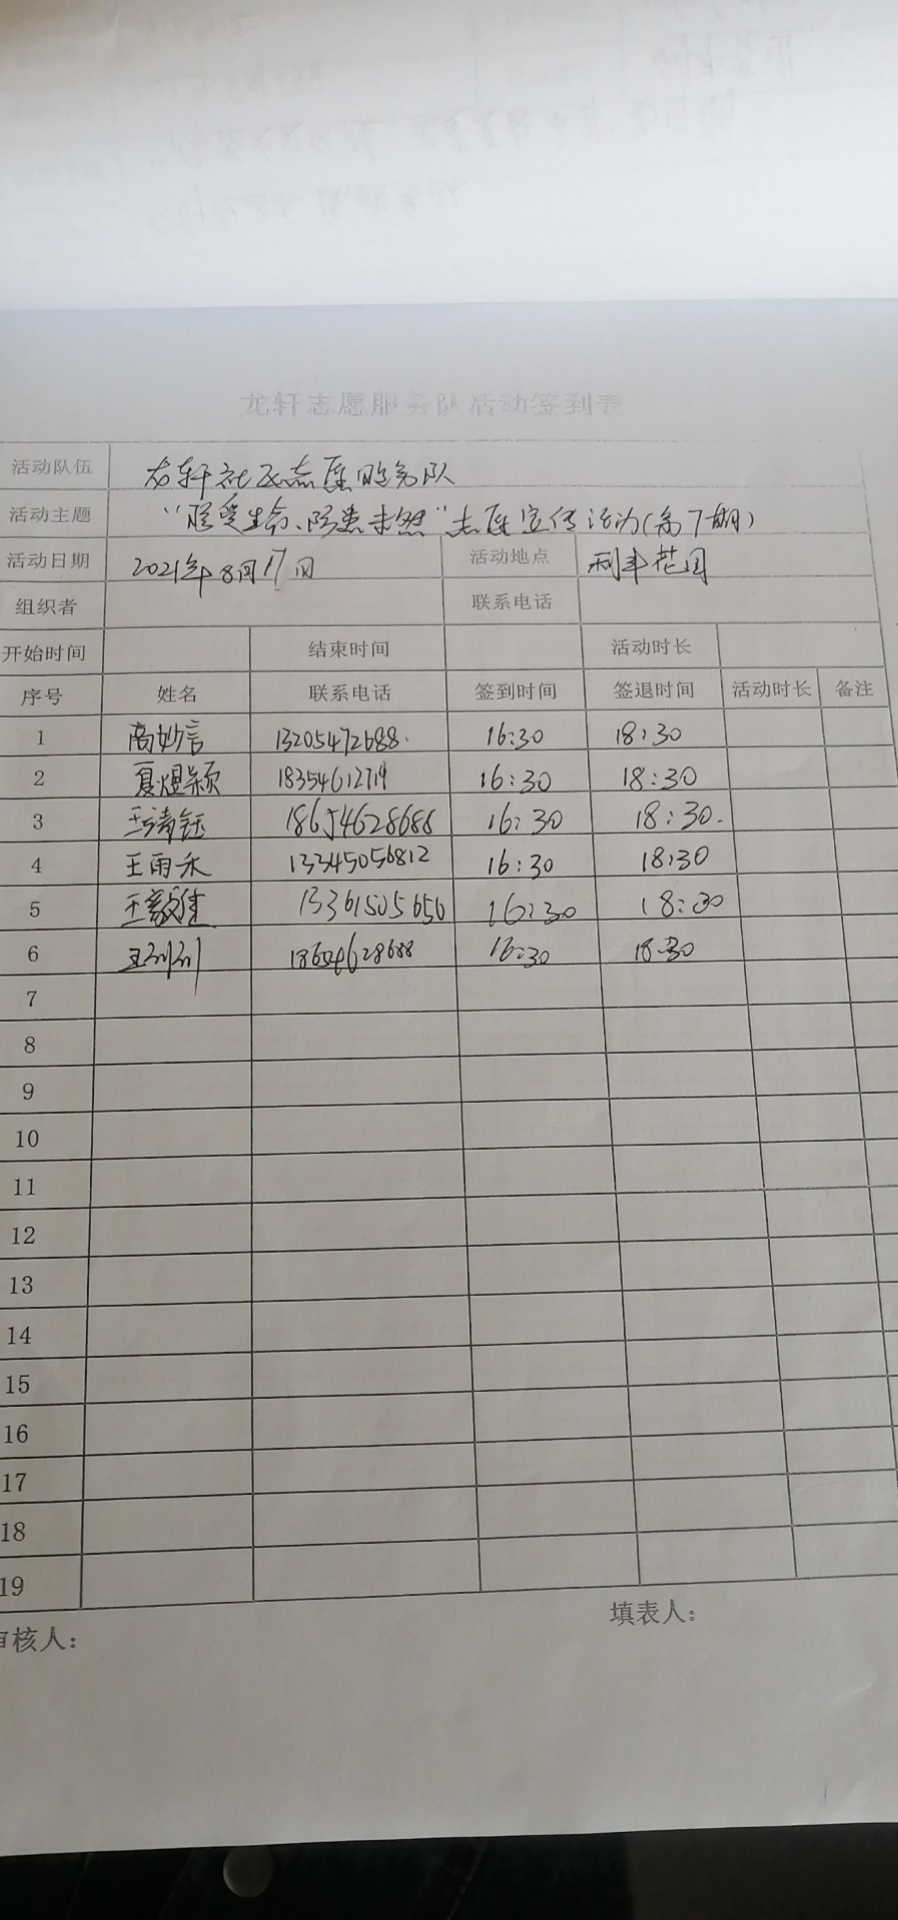 龙轩志愿服务队活动签到表
活动队伍 龙轩社区志愿服务队
活动主题 “ 爱生命、防患未然”志愿宣传活动(第7期)
活动日期 2021年8月17日 活动地点 利丰花园
组织者 联系电话
开始时间 结束时间 活动时长
序号 姓名 联系电话 签到时间 签退时间 活动时长 备注
1 高妙言 13205472688. 16:30 18:30
2 夏煜颖 18354612719 16:30 18:30
3 王 钰 18654628688 16:30 18:30.
4 王雨禾 13345056812 16:30 18:30
5 王 13361505650 16:30 18:30
6 18654628688 16:30 18:30
7
8
9
10
11
12
13
14
15
16
17
18
19
审核人: 填表人: